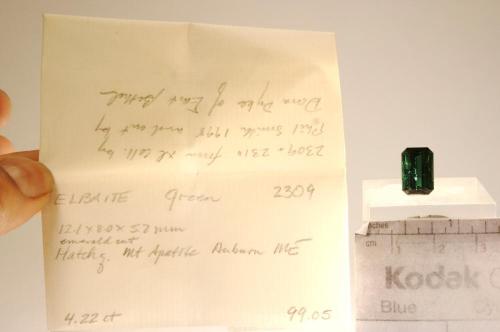 2309 + 2310 from xl coll. by
Phil Smith 1998 and cut by
Dana Dyke of East Bethel
ELBAITE green 2309
12.1 x 8.0 x 5.2 mm
emerald cut
Hatch q. Mt Apatite Auburn ME
4.22 ct 99.05
inches 1 2
cm 1 2 3 4
Kodak
Blue